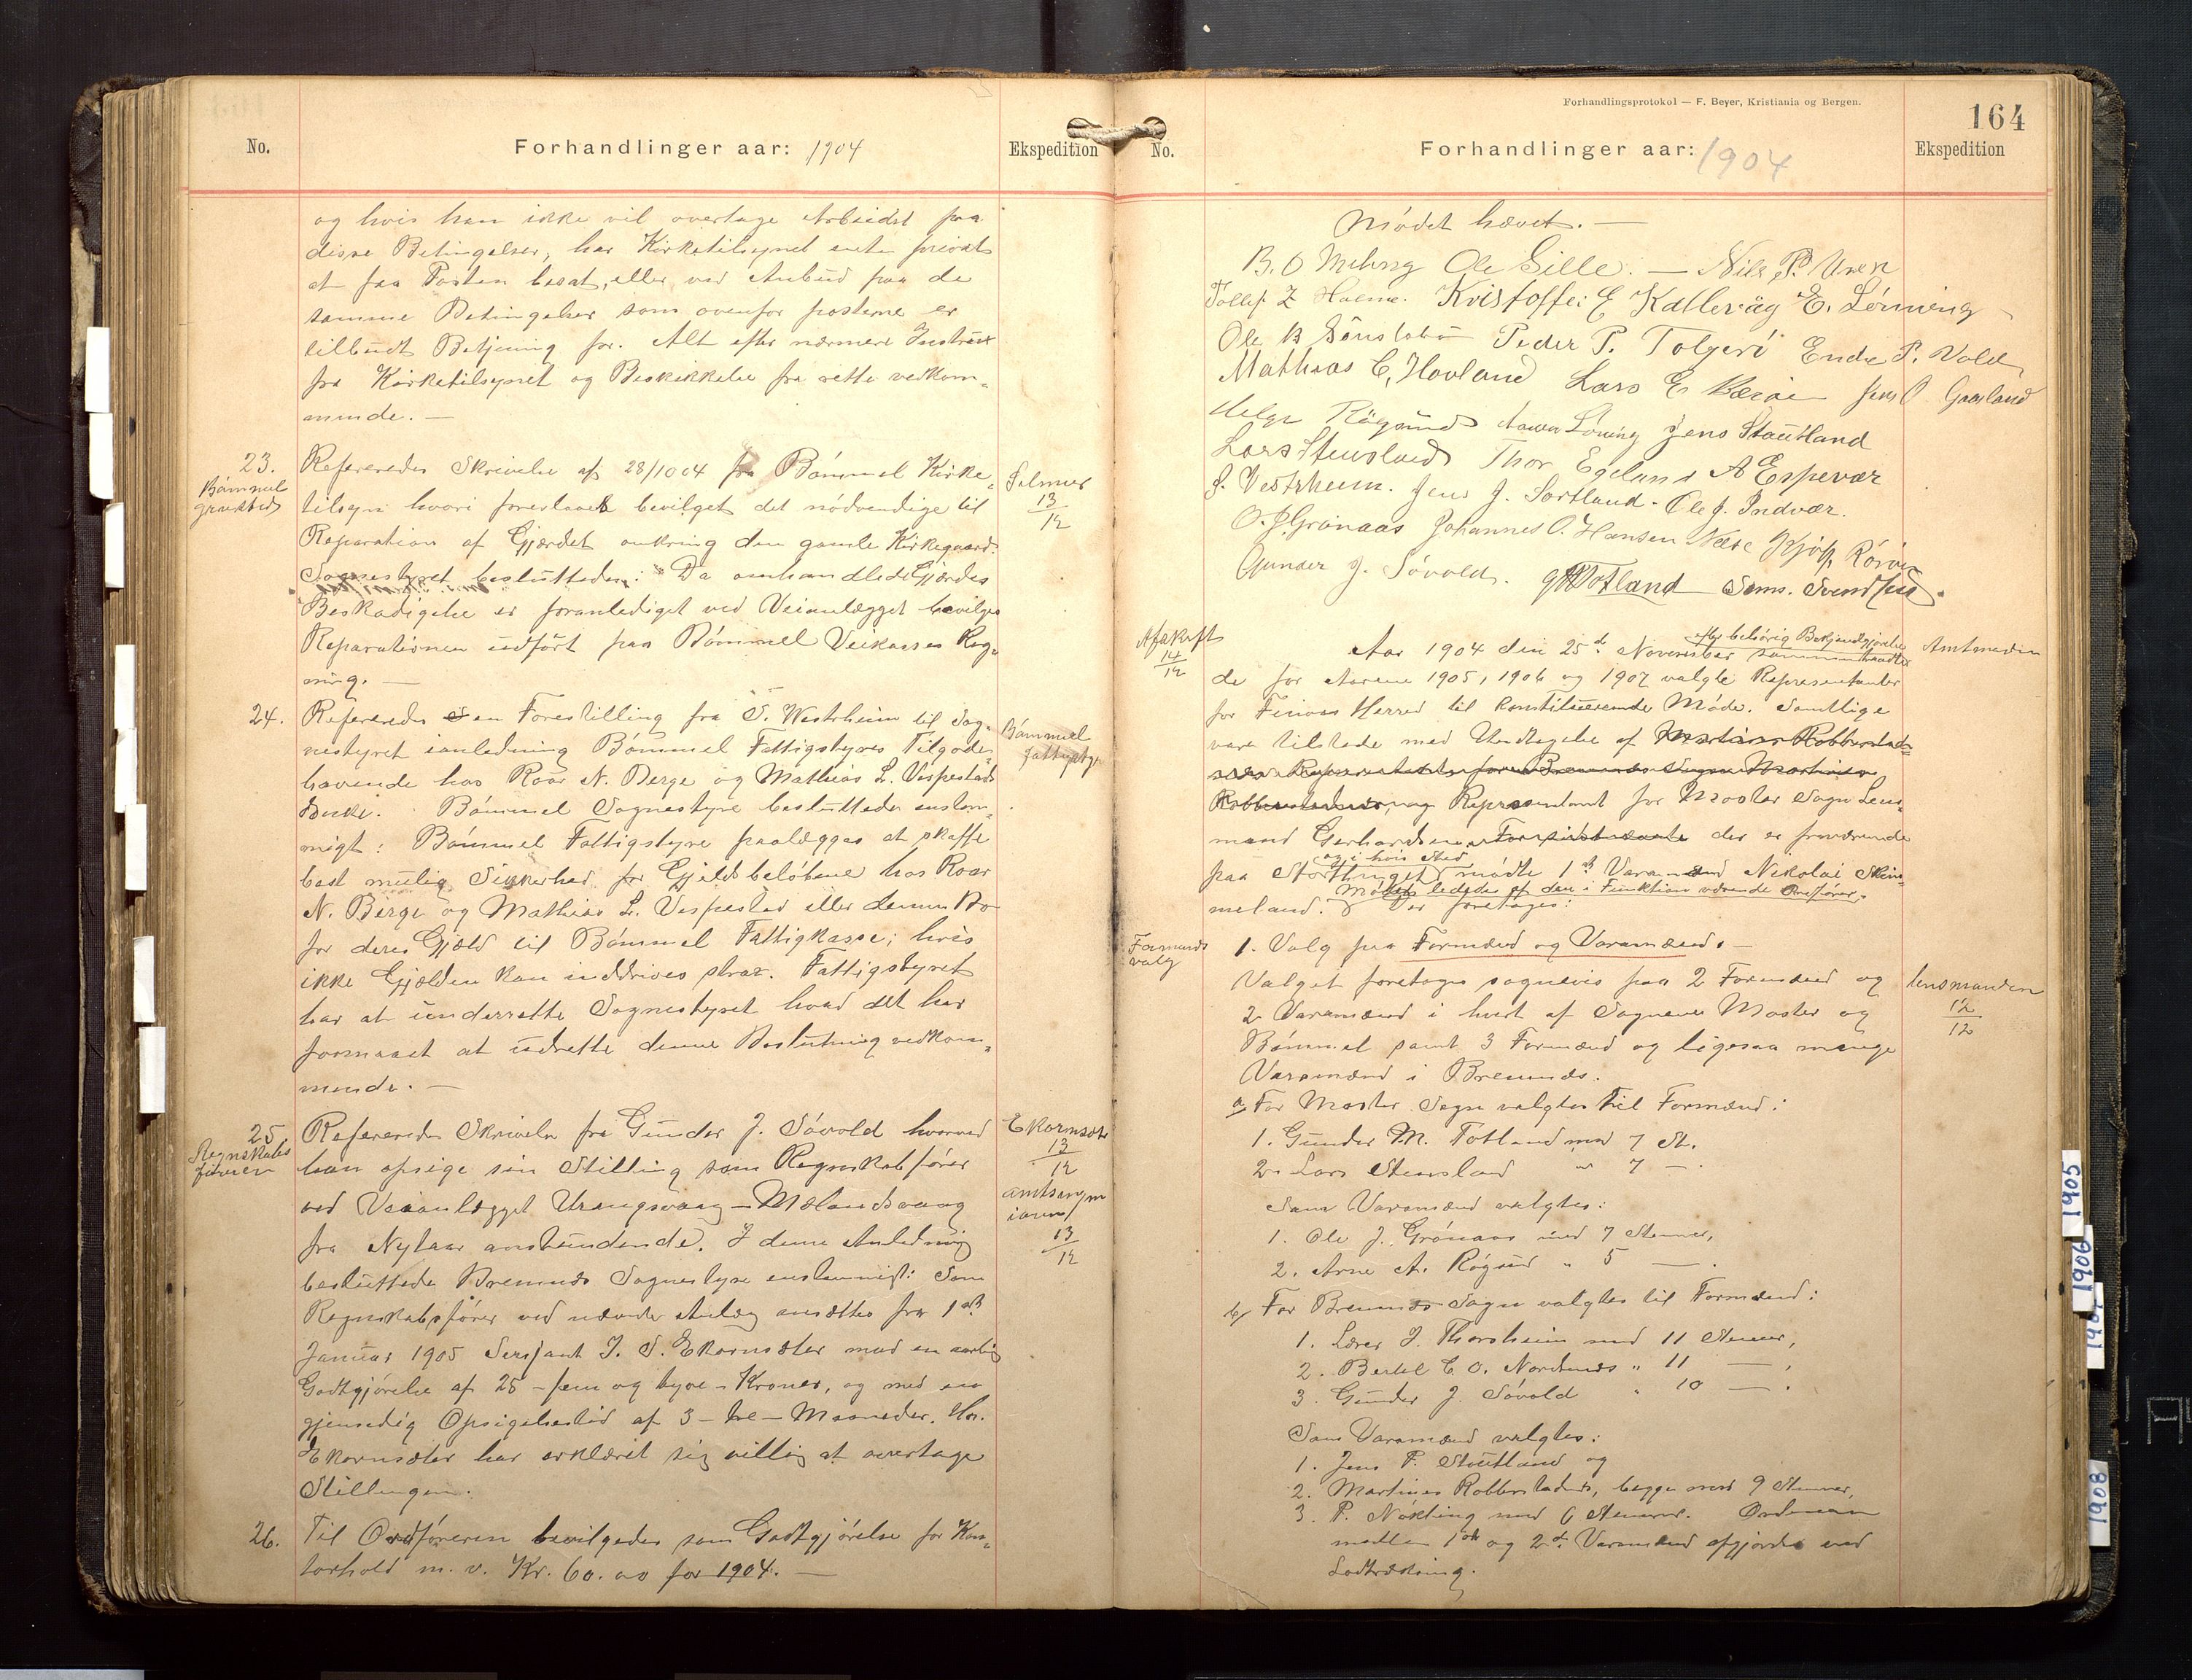 No.
Forhandlinger aar: 1904
Ekspedition
og hvis han ikke vil overtage Arbeidet paa
disse Betingelser, har Kirketilsynet enten privat
at faa Posten besat, eller ved Anbud paa de
samme Betingelser som ovenfor posterne er
tilbudt Betjening for. Alt efter nærmere Instrux
fra Kirketilsynet og Beskikkelse fra rette vedkom-
mende. —
23.
Bømmel
Refereredes Skrivelse af 28/10 04 fra Bømmel Kirke-
tilsyn hvori foreslaaes bevilget det nødvendige til
Reparation af Gjærdet omkring den gamle Kirkegaard.
Sognestyret besluttede: Da omhandlede Gjærdes
Beskadigelse er foranlediget ved Veianlægget bevilges
Reparationen udført paa Bømmel Veikasses Reg-
ning. —
13
12
24.
Refereredes en Forestilling fra S. Westrheim til Sog-
nestyret i anledning Bømmel Fattigstyres Tilgode-
havende hos Roar N. Berge og Mathias L. Vespestad
Enke. Bømmel Sognestyre besluttede enstem-
migt: Bømmel Fattigstyre paalægges at skaffe
best mulig Sikkerhed for Gjeldsbeløbene hos Roar
N. Berge og Mathias L. Vespestad eller dennes Bo
for deres Gjæld til Bømmel Fattigkasse; hvis
ikke Gjælden kan inddrives strax. Fattigstyret
har at underrette Sognestyret hvad det har
formaaet at udrette denne Beslutning vedkom-
mende. —
Bømmel
fattigstyr
25
Regnskabs
føreren
Refereredes Skrivelse fra Gunder J. Søvold hvorved
han opsige sin Stilling som Regnskabsfører
ved Veianlægget Urangsvaag – Mælandsvaag
fra Nytaar anstundende. I denne Anledning
besluttede Bremnæs Sognestyre enstemmigt: Som
Regnskabsfører ved nævnte Anlæg ansættes fra 1ste
Januar 1905 Sersjant J. S. Ekornsæter med en aarlig
Godtgjørelse af 25 – fem og tyve – Kroner, og med en
gjensidig Opsigelsestid af 3 – tre – Maaneder. Hr.
Ekornsæter har erklæret sig villig at overtage
Stillingen.
Ekornsæter
13
12
13
12
26.
Til Ordføreren bevilgedes som Godtgjørelse for Kon-
torhold m. v. Kr. 60.00 for 1904. —
Forhandlingsprotokol — F. Beyer, Kristiania og Bergen.
164
No.
Forhandlinger aar: 1904
Ekspedition
Mødet hævet. —
Ole Gille. — Nils P. Uren
Tollef Z Holme. Kristoffer E Katlevåg E. Lønning
Ole B Sønstabø Peder P. Folgerø Endre P. Vold
Mathias C. Hovland Lars E Jens O Gaasland
Helge Røgsund Lønning Jens Stautland
Lars Stensland Thor Egeland A Espevær
J. Vestrheim. Jens J. Sortland. Ole J. Indvær.
O. J. Grønaas Johannes O. Hansen Næse
Gunder J. Søvold. G M Totland Sems. Svendsen.
Afskrift
14
12
Aar 1904 den 25de November efter behørig Bekjendtgjørelse sammentraadte
de for Aarene 1905, 1906 og 1907 valgte Repræsentanter
for Finaas Herred til konstituerende Møde. Samtlige
vare tilstede med Undtagelse af Martines Robberstad-
Repræsentant for Bremnæs Sogn Martines
Robberstadnes, og Repræsentant for Moster Sogn Lens-
mand Gerhardsen, der er fraværende
paa Storthinget og i hvis Sted mødte 1ste Varamand Nikolai Skim-
meland. Mødet lededes af den i Funktion værende Ordfører.
Der foretoges:
Amtmanden
Formands
valg
1. Valg paa Formænd og Varamænd. —
Valget foretoges sognevis paa 2 Formænd og
2 Varamænd i hvert af Sognene Moster og
Bømmel samt 3 Formænd og ligesaa mange
Varamænd i Bremnæs.
lensmanden
12
12
a) For Moster Sogn valgtes til Formænd:
1. Gunder M. Totland med 7 St.
2. Lars Stensland " 7 —
Som Varamænd valgtes:
1. Ole J. Grønaas med 7 Stemmer,
2. Arne A. Røgsund " 5 — .
b) For Bremnæs Sogn valgtes til Formænd:
1. Lærer J. Thorsheim med 11 Stemmer,
2. Bertel C. O. Nordnæs " 11 — ,
3. Gunder J. Søvold " 10 — .
Som Varamænd valgtes:
1. Jens P. Stautland og
2. Martines Robberstadnes, begge med 9 Stemmer,
3. P. Nøkling med 6 Stemmer. Ordenen
mellem 1ste og 2den Varamænd afgjordes ved
Lodtrækning.
1905
1906
1908